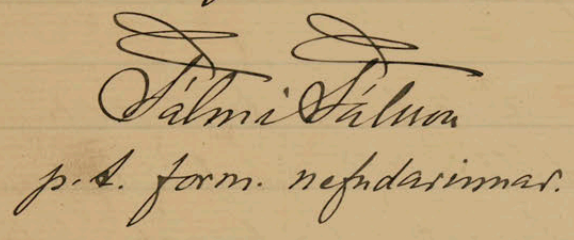 Pálmi Pálsson
p.t. form. nefndarinnar.